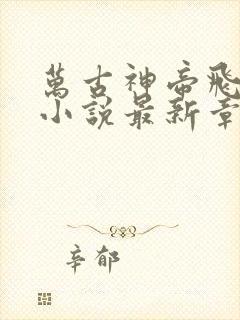 萬古神帝飛
小說最新章
辛郁